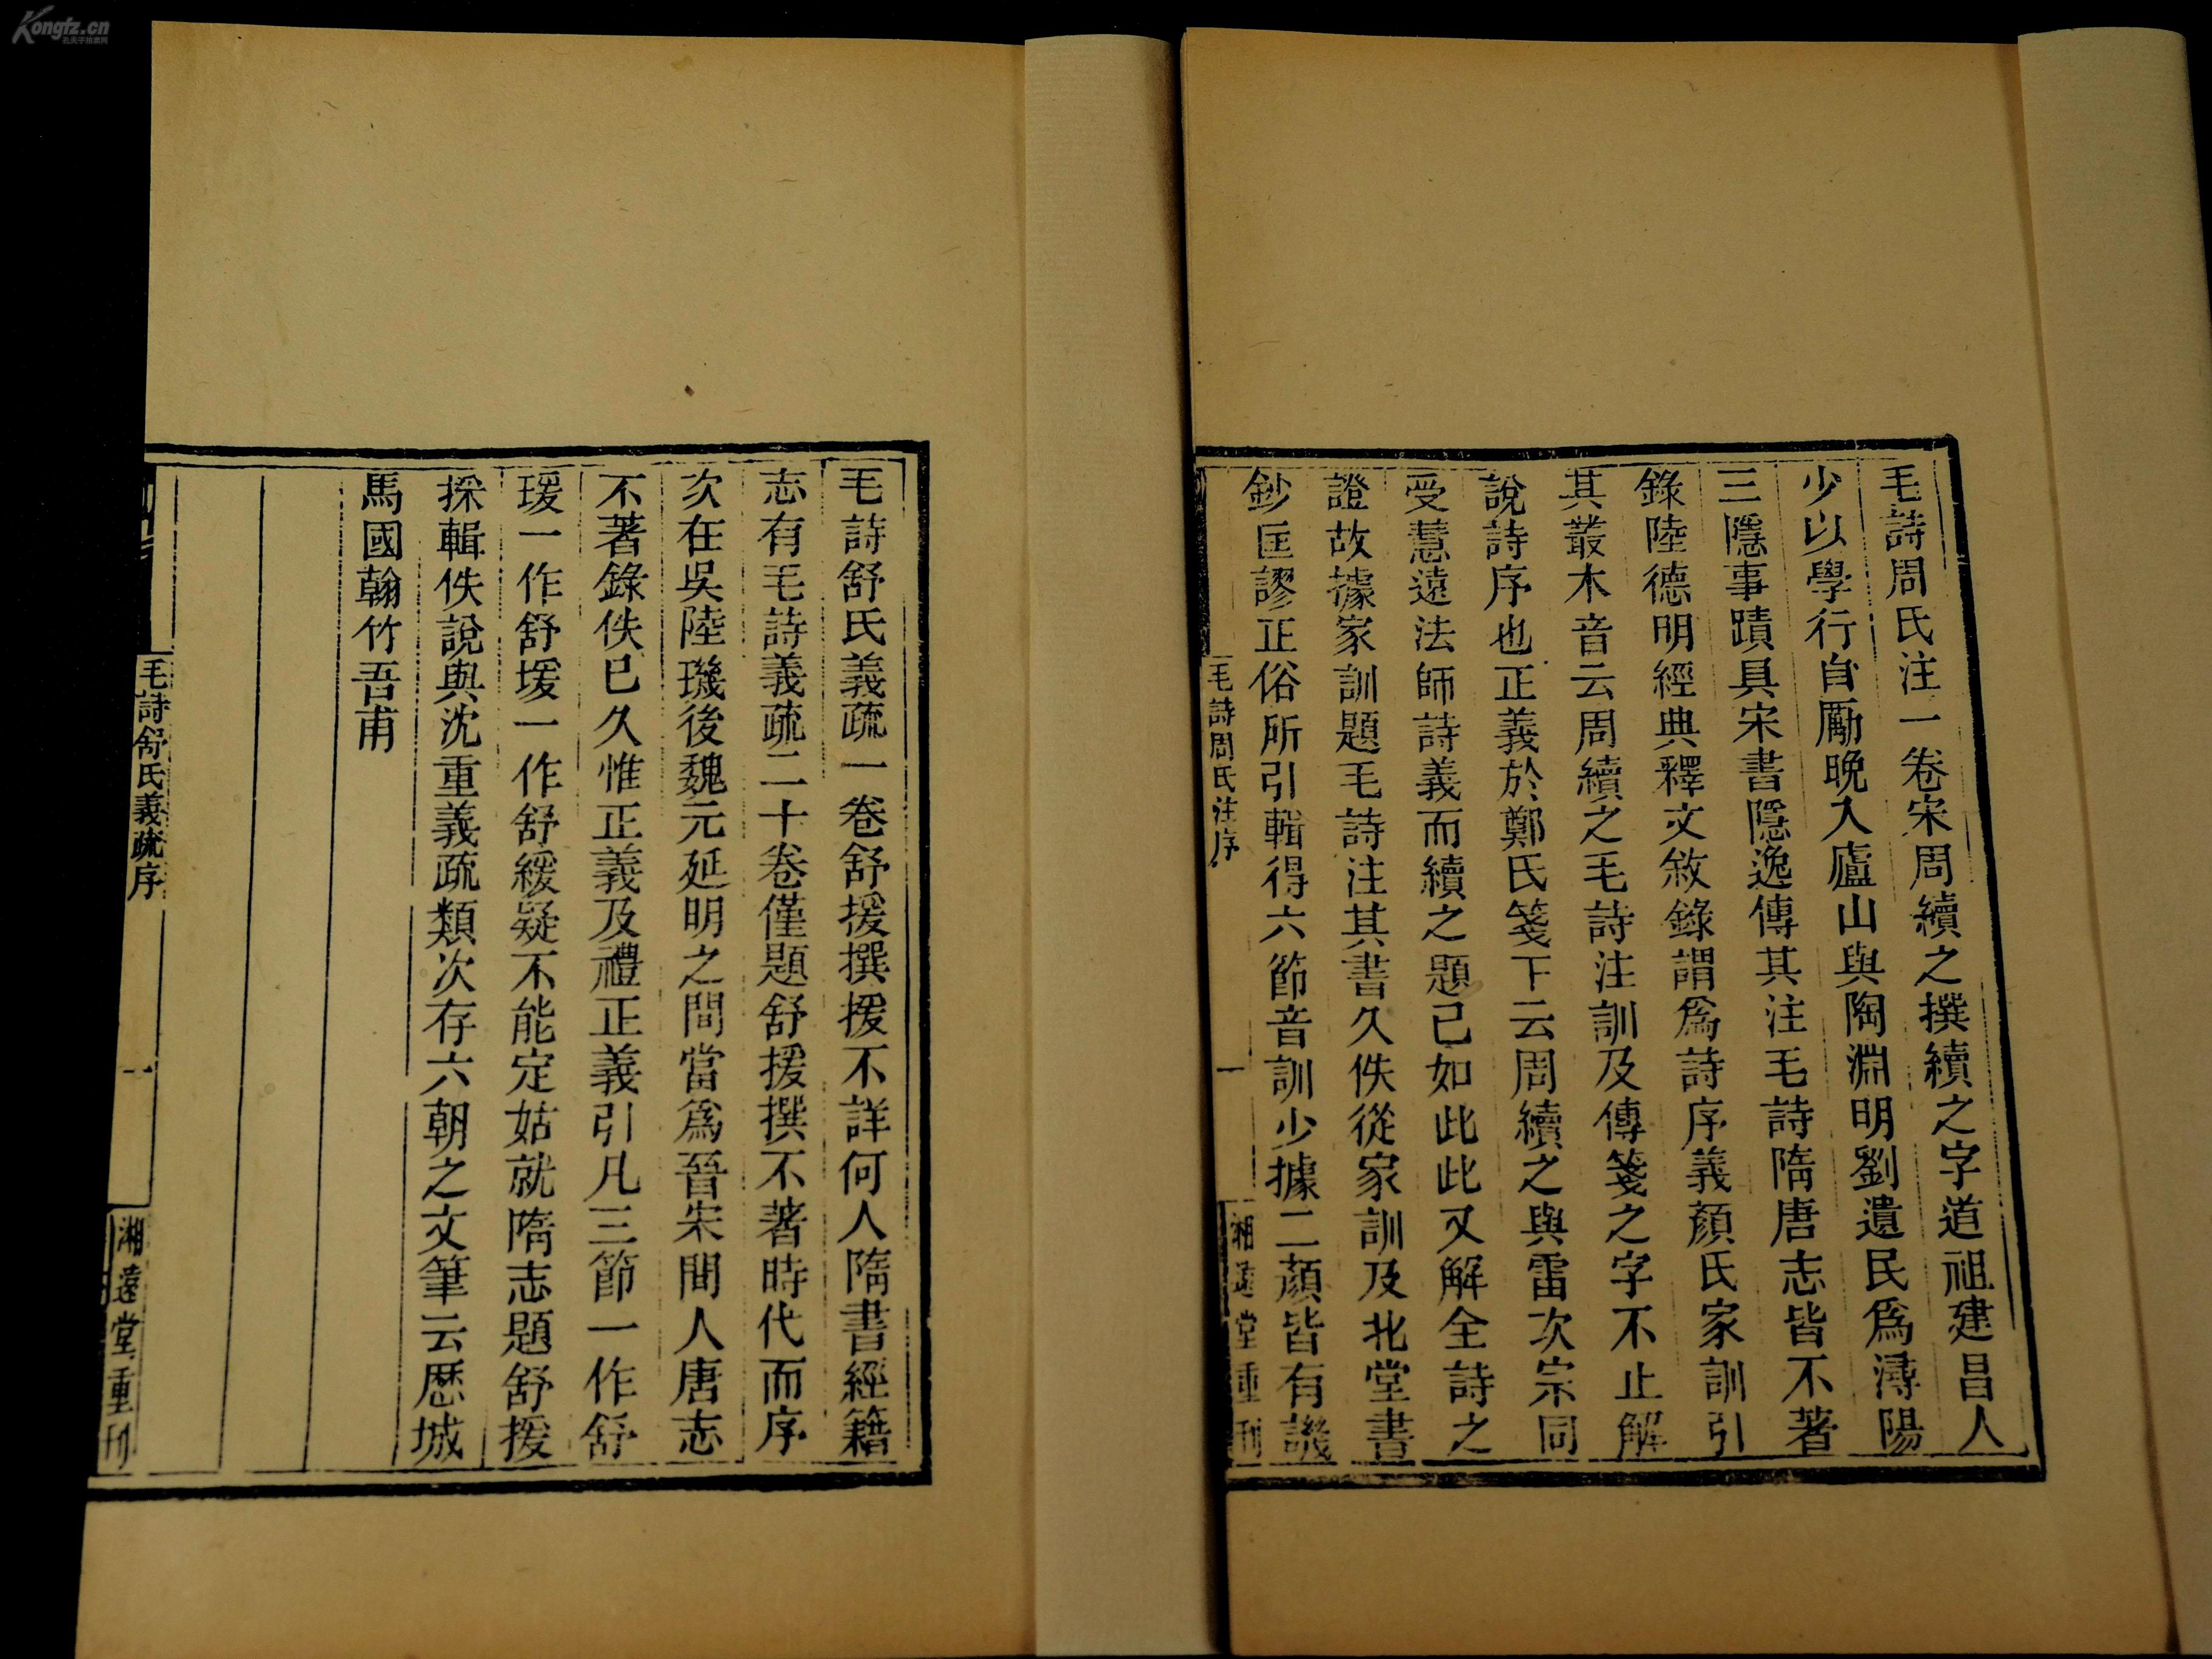 毛詩周氏注一卷宋周續之撰續之字道祖建昌人
少以學行自勵晚入廬山與陶淵明劉遺民爲潯陽
三隱事蹟具宋書隱逸傳其注毛詩隋唐志皆不著
錄陸德明經典釋文敘錄謂爲詩序義顏氏家訓引
其叢木音云周續之毛詩注訓及傳箋之字不止解
說詩序也正義於鄭氏箋下云周續之與雷次宗同
受慧遠法師詩義而續之題已如此此又解全詩之
證故據家訓題毛詩注其書久佚從家訓及北堂書
鈔匡謬正俗所引輯得六節音訓少據二顏皆有譏
毛詩周氏注序
一
湘遠堂重刊
毛詩舒氏義疏一卷舒援撰援不詳何人隋書經籍
志有毛詩義疏二十卷僅題舒援撰不著時代而序
次在吳陸璣後魏元延明之間當爲晉宋間人唐志
不著錄佚已久惟正義及禮正義引凡三節一作舒
瑗一作舒堫一作舒緩疑不能定姑就隋志題舒援
採輯佚說與沈重義疏類次存六朝之文筆云歷城
馬國翰竹吾甫
毛詩舒氏義疏序
一
湘遠堂重刊
Kongfz.cn
孔夫子拍卖网